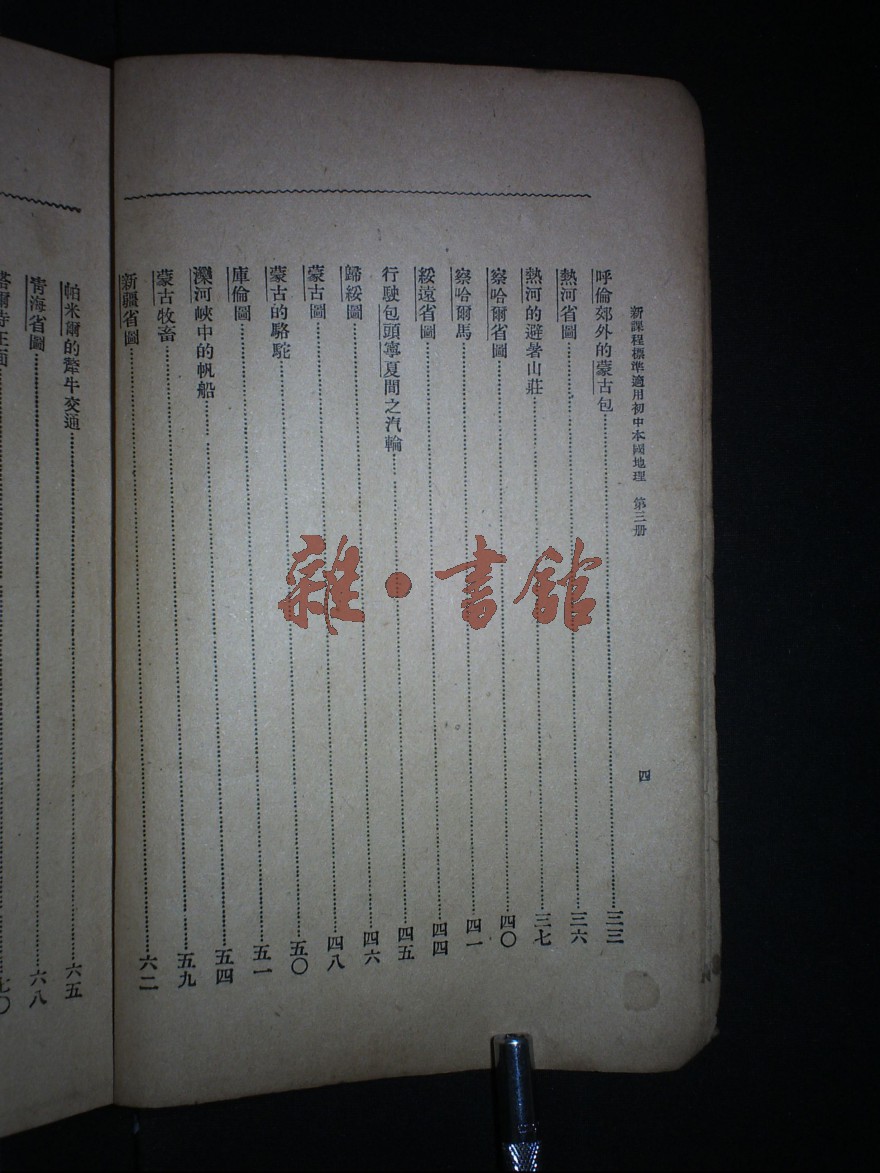 新課程標準適用初中本國地理　第三册
四
呼倫郊外的蒙古包……三三
熱河省圖……三六
熱河的避暑山莊……三七
察哈爾省圖……四〇
察哈爾馬……四一
綏遠省圖……四四
行駛包頭寧夏間之汽輪……四五
歸綏圖……四六
蒙古圖……四八
蒙古的駱駝……五〇
庫倫圖……五一
灤河峽中的帆船……五四
蒙古牧畜……五九
新疆省圖……六二
帕米爾的犛牛交通……六五
青海省圖……六八
塔爾寺正面……七〇
雜・書館